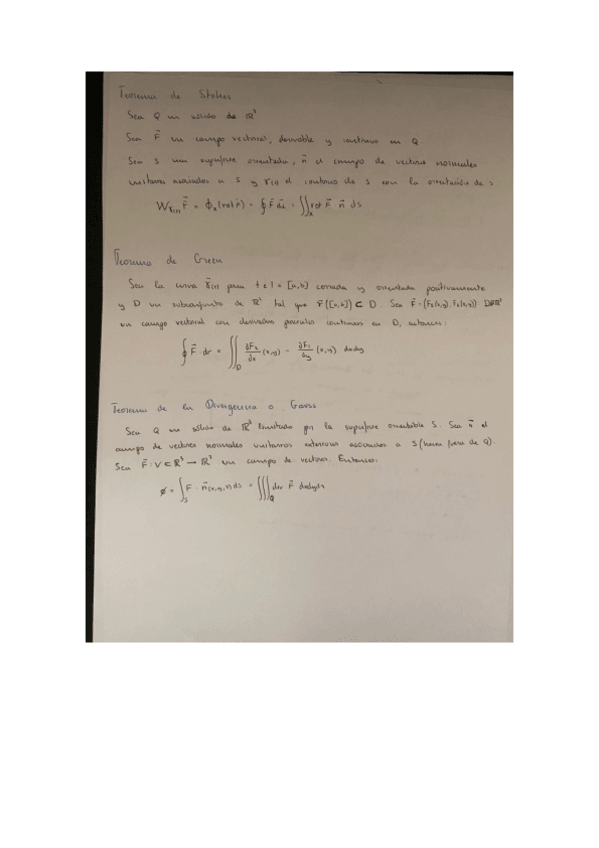 Teorema de Stokes
Sea Q un sólido de ℝ³
Sea F⃗ un campo vectorial, derivable y continuo en Q
Sea S una superficie orientada, n⃗ el campo de vectores normales
unitarios asociados a S y γ(t) el contorno de S con la orientación de S
W_γ(t) F⃗ = ϕ_s(rot F⃗) = ∮ F⃗ dr⃗ = ∬_s rot F⃗ n⃗ ds
Teorema de Green
Sea la curva r⃗(t) para t ∈ I = [a,b] cerrada y orientada positivamente
y D un subconjunto de ℝ² tal que r⃗([a,b]) ⊂ D. Sea F⃗ = (F₁(x,y), F₂(x,y))
un campo vectorial con derivadas parciales continuas en D, entonces:
∮ F⃗ · dr = ∬_D ∂F₂/∂x (x,y) - ∂F₁/∂y (x,y) dxdy
Teorema de la Divergencia o Gauss
Sea Q un sólido de ℝ³ limitado por la superficie orientable S. Sea n⃗ el
campo de vectores normales unitarios exteriores asociados a S (hacia fuera de Q).
Sea F⃗: V ⊂ ℝ³ → ℝ³ un campo de vectores. Entonces:
ϕ = ∫_S F · n⃗(x,y,z) ds = ∭_Q div F⃗ dxdydz